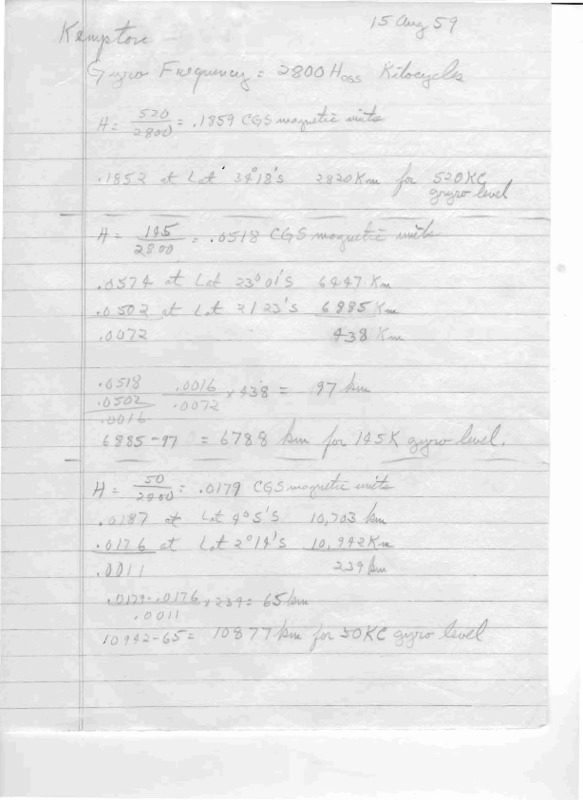 15 Aug 59
Kempton
Gyro Frequency = 2800 H OGS Kilocycles
H = 520/2800 = .1859 CGS magnetic units
.1852 at Lat 34°18'S 2820 Km for 520KC
gyro level
H = 145/2800 = .0518 CGS magnetic units
.0574 at Lat 23°01'S 6447 Km
.0502 at Lat 21 23'S 6885 Km
.0072 438 Km
.0518 .0016/.0072 x 438 = 97 km
.0502
.0016
6885-97 = 6788 km for 145K gyro level.
H = 50/2800 = .0179 CGS magnetic units
.0187 at Lat 4°5'S 10,703 km
.0176 at Lat 2°14'S 10,942 Km
.0011 239 km
.0179-.0176/.0011 x 239 = 65 km
10942-65 = 10877 km for 50KC gyro level